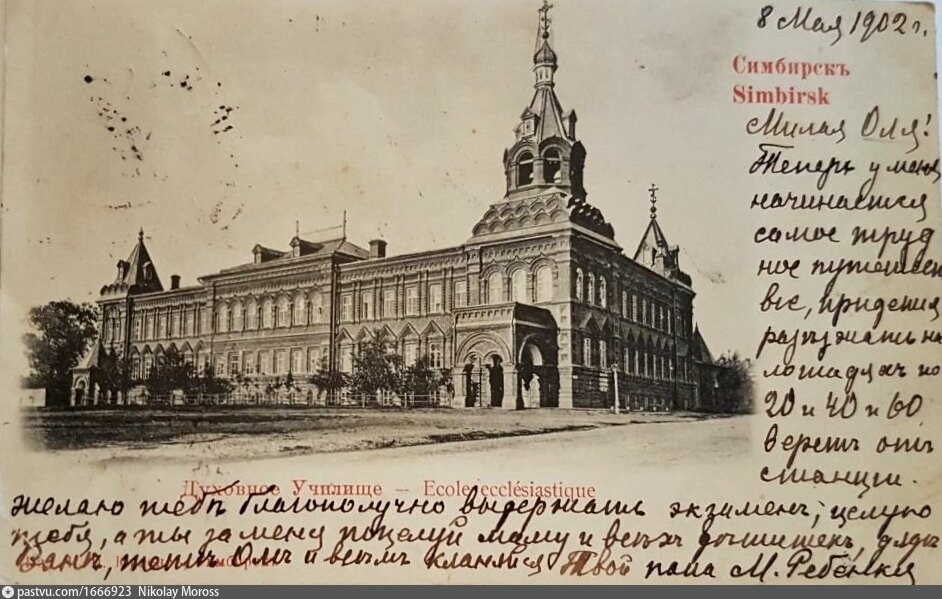 8 Мая 1902 г.
Симбирскъ
Simbirsk
Милая Оля!
Теперь у меня
начинается
самое труд
ное путешест
віе, придется
разъѣзжать на
лошадяхъ по
20 и 40 и 60
верстъ отъ
станціи.
Духовное Училище – Ecole ecclésiastique
желаю тебѣ благополучно выдержать экзаменъ, цѣлую
тебя, а ты за меня поцелуй маму и всѣхъ
Ванѣ, тетѣ Олѣ и всѣмъ кланяйся Твой папа М.
pastvu.com/1666923 Nikolay Moross